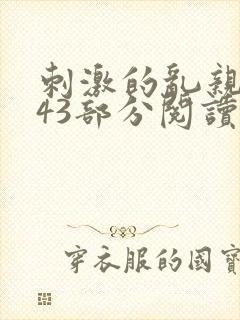 刺激的亂親
43部分閱讀
穿衣服的國寶